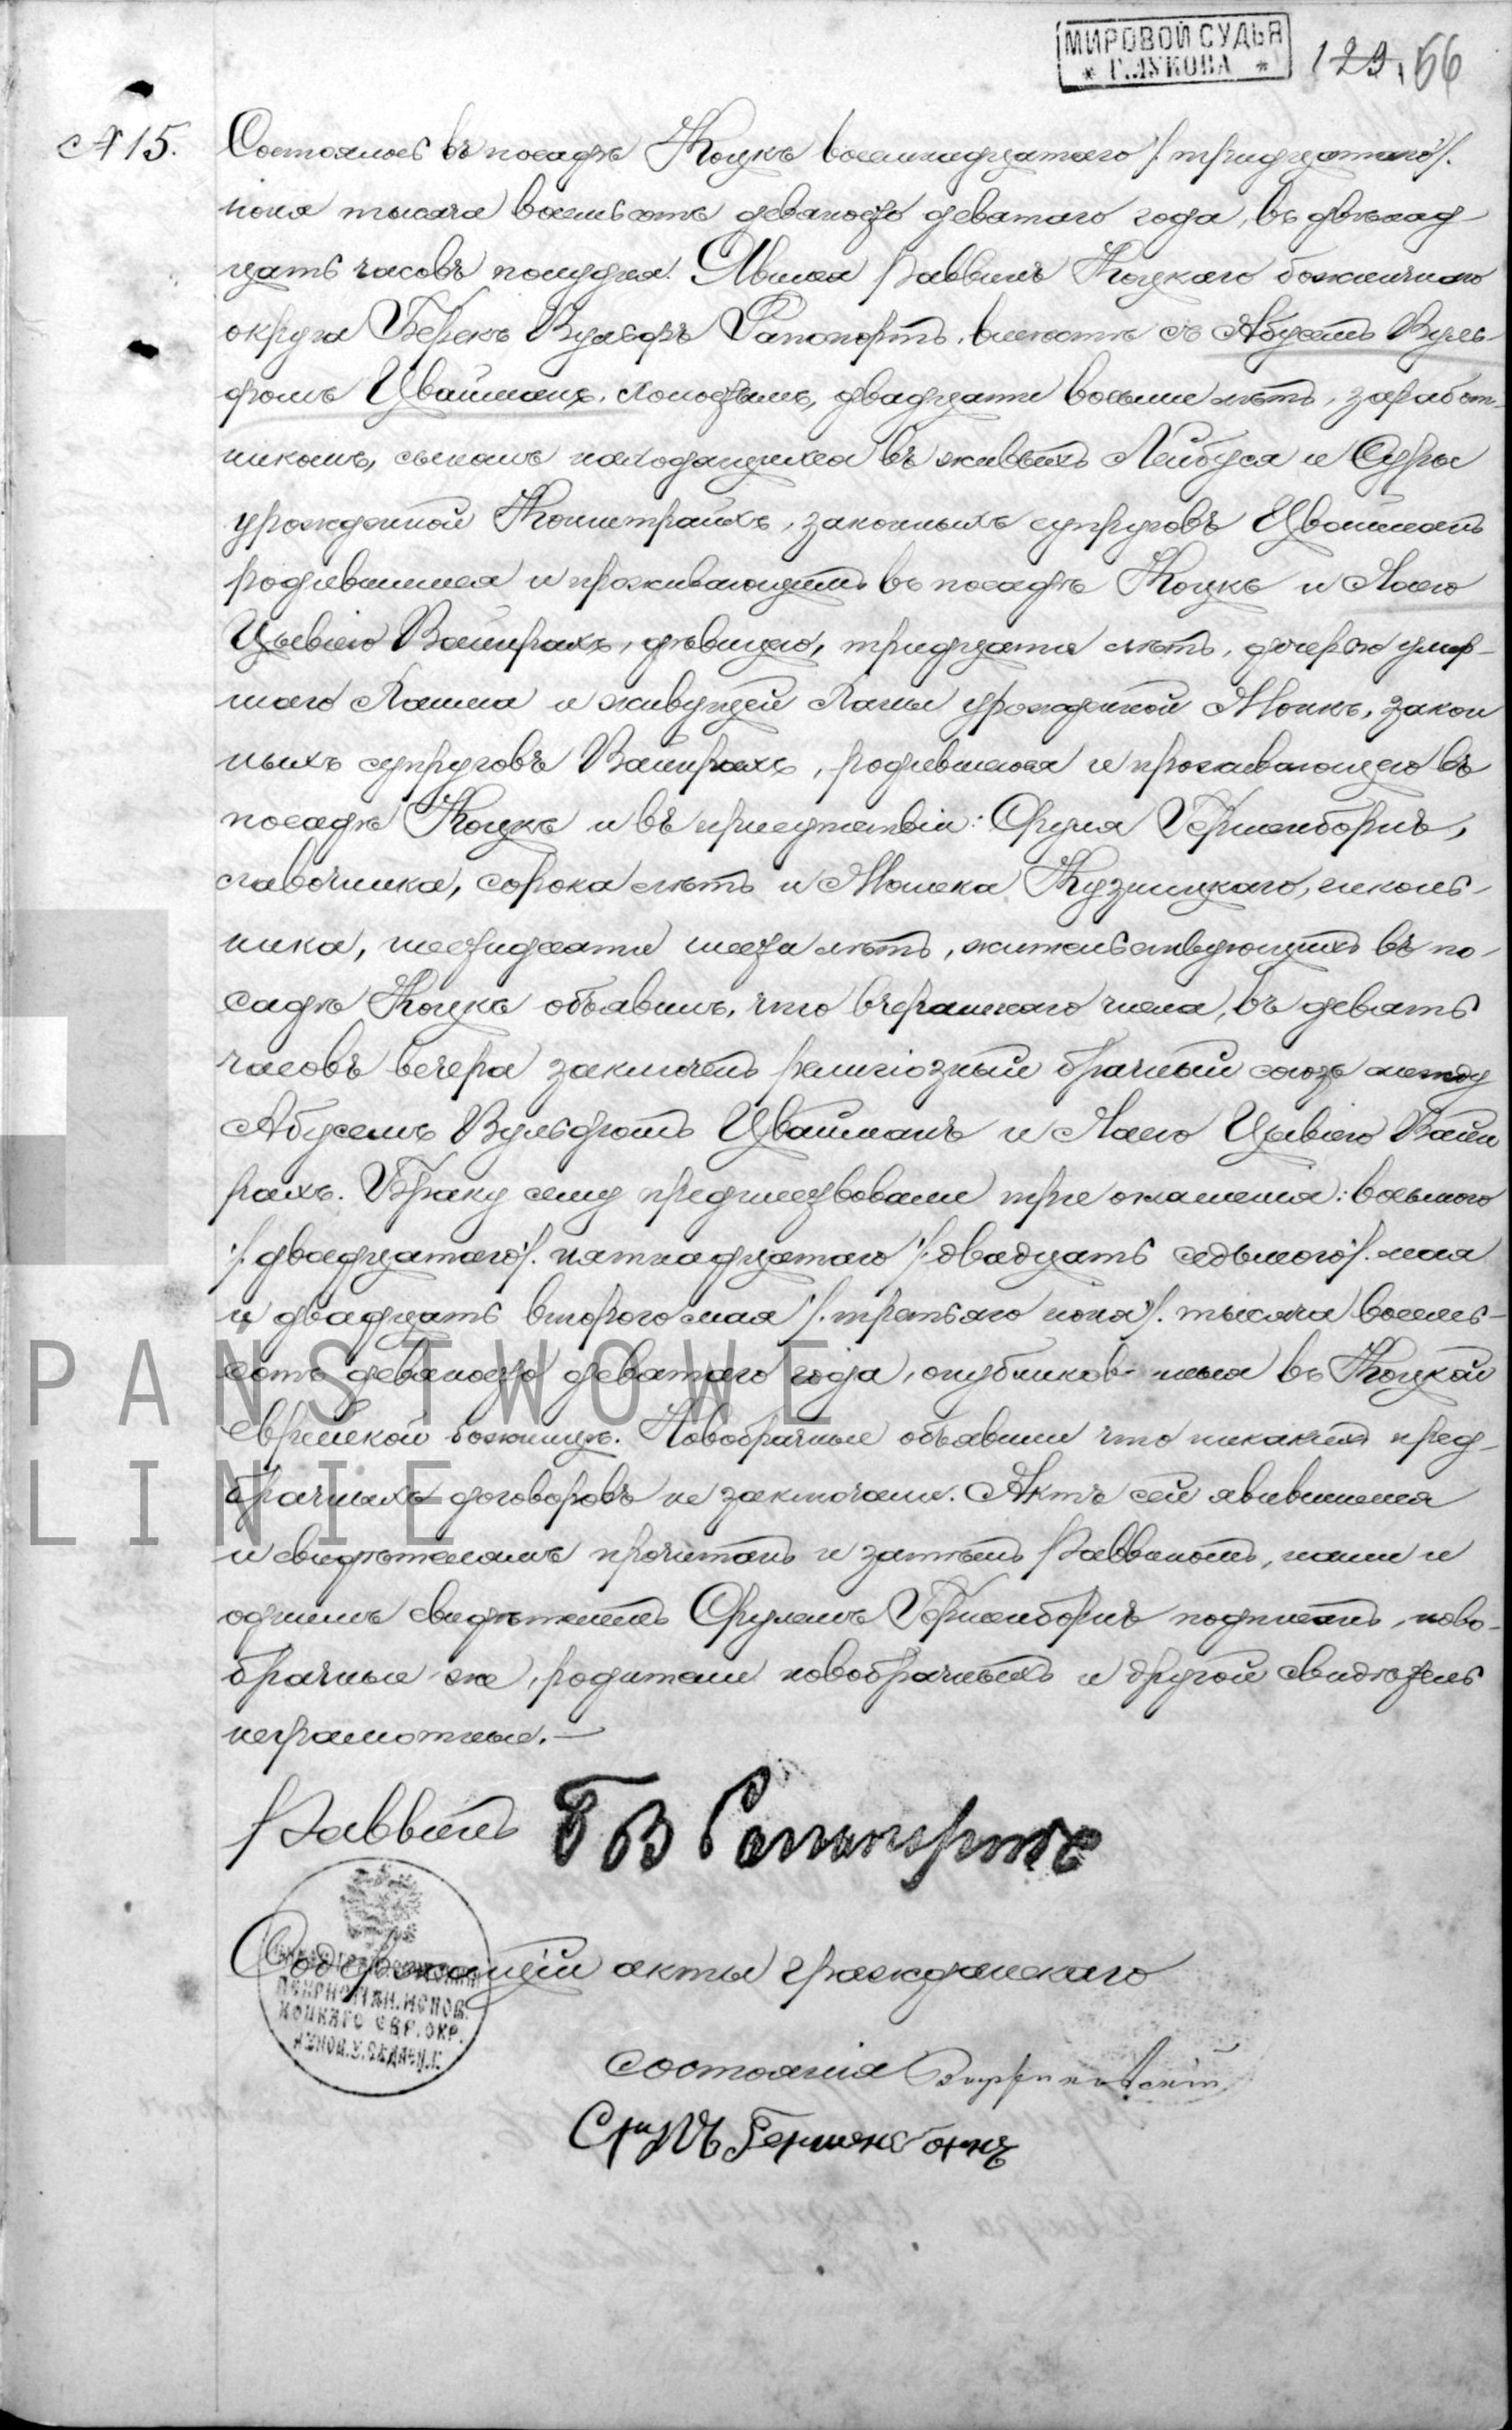 МИРОВОЙ СУДЬЯ
* Г. ЛУКОВА *
129. 66
№ 15.
Состоялось въ посадѣ Коцкъ восемнадцатаго /. тридцатаго /.
іюня тысяча восемьсотъ девяносто девятаго года, въ двѣнад-
цать часовъ полудня. Явился Раввинъ Коцкаго божничнаго
округа Берекъ Вульфъ Рапопортъ, вместѣ съ Абусемъ Вуль-
фомъ Цвайманъ, холостымъ, двадцати восьми лѣтъ, заработ-
никомъ, сыномъ находящихся въ живыхъ Лейбуся и Суры
урожденной Коништрайхъ, законныхъ супруговъ Цвайманъ
родившимся и проживающимъ въ посадѣ Коцкъ и Ласю
Цывіею Вайнрахъ, дѣвицею, тридцати лѣтъ, дочерью умер-
шаго и живущей урожденной Монкъ, закон
ныхъ супруговъ Вайнрахъ, родившеюся и проживающею въ
посадѣ Коцкъ и въ присутствіи: Сруля Гершенборнъ,
лавочника, сорока лѣтъ и Мошека Кузницкаго, школь-
ника, шестидесяти шести лѣтъ, жительствующихъ въ по-
садѣ Коцкъ объявилъ, что вчерашняго числа, въ девять
часовъ вечера заключенъ религіозный брачный союзъ между
Абусемъ Вульфомъ Цвайманъ и Ласю Цывіею Вайн
рахъ. Браку сему предшествовали три оглашенія: восьмого
/. двадцатаго /. пятнадцатаго /. двадцать седьмого /. мая
и двадцать второго мая /. третьяго іюня /. тысяча восемь-
сотъ девяносто девятаго года, опубликованныя въ Коцкой
Еврейской божницѣ. Новобрачные объявили что никакихъ пред-
брачныхъ договоровъ не заключали. Актъ сей явившимся
и свидѣтелямъ прочитанъ и затѣмъ Раввиномъ, нами и
однимъ свидѣтелемъ Срулемъ Гершенборнъ подписанъ, ново-
брачные же, родители новобрачныхъ и другой свидѣтель
неграмотные. —
Раввинъ Б В Рапопортъ
Содержащій акты гражданскаго
состоянія
Сруль Гершенборнъ
НЕХРИСТІАН. ИСПОВ.
КОЦКАГО ЕВР. ОКР.
ЛУКОВ. У. СѢДЛЕЦ. Г.
PANSTWOWE
LINIE